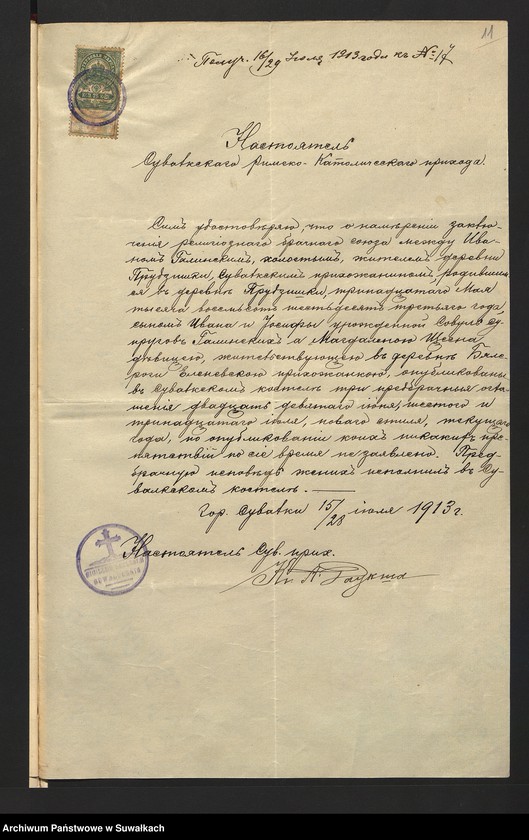 11
Получ. 16/29 Іюля 1913 года къ № 17
Настоятель
Сувалкскаго Римско-Католическаго прихода.
Симъ удостовѣряю, что о намѣреніи заклю-
ченія религіознаго брачнаго союза между Ива-
номъ Галинскимъ, холостымъ, жителемъ деревни
Прудзишки, Сувалкскимъ прихожаниномъ родившим-
ся въ деревнѣ Прудзишки, тринадцатаго Мая
тысяча восемьсотъ шестьдесятъ третьяго года
сыномъ Ивана и Іосифы урожденной су-
пруговъ Галинскихъ а Магдаленою
дѣвицею, жительствующею въ деревнѣ Бяло-
роги Еленевскою прихожанкою, опубликованы
въ Сувалкскомъ костелѣ три предбрачныя огла-
шенія двадцать девятаго іюня, шестого и
тринадцатаго іюля, новаго стиля, текущаго
года, по опубликованіи коихъ никакихъ пре-
пятствій по сіе время не заявлено. Пред-
брачную исповѣдь женихъ исполнилъ въ Су-
валкскомъ костелѣ.
Гор. Сувалки 15/28 іюля 1913 г.
Настоятель Сув. прих.
Кс. А.
Archiwum Państwowe w Suwałkach